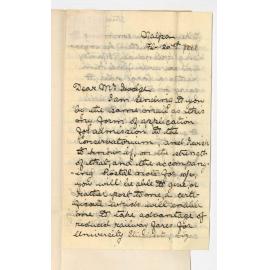 Dear Mr
I am sending to you
by the same mail as this
my form of application
for admission to the
Conservatorium, and
to know if, on the strength
of that, and the accompany-
ing Postal note for 10/6,
you will be able to give or
rather post to me, a certi-
ficate which will enable
me to take advantage of
reduced railway fares for
University